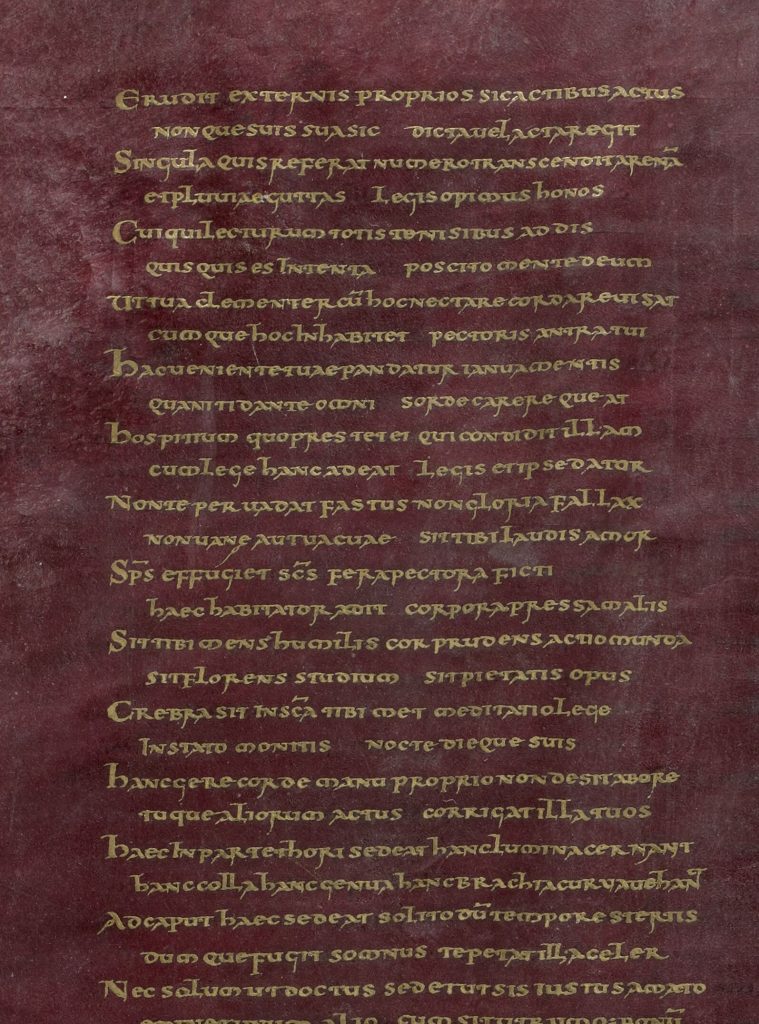 Erudit externis proprios sic actibus actus
non que suis sua sic dicta vel acta regit
Singula quis referat numero transcendit arenā
et pluviae guttas legis opimus honos
Cui qui lecturum totis te nisibus addis
quisquis es intenta poscito mente deum
Ut tua clementer cū hoc nectare corda revisat
cumque hoc inhabitet pectoris antra tui
Hac veniente tuae pandatur ianua mentis
quan iti dante omni sorde carere queat
Hospitium quo prestet ei qui condidit illam
cum lege hanc adeat legis et ipse dator
Non te pervadat fastus non gloria fallax
non vane aut vacuae sit tibi laudis amor
Sp̄s effugiet sc̄s fera pectora ficti
haec habitator adit corpora pressa malis
Sit tibi mens humilis cor prudens actio munda
sit florens studium sit pietatis opus
Crebra sit in sc̄a tibimet meditatio lege
instato monitis nocte dieque suis
Hanc gere corde manu proprio non desit ab ore
tuque aliorum actus corrigat illa tuos
Haec in parte thori sedeat hanc lumina cernant
hanc colla hanc genua hanc brachia curva vehant
Ad caput haec sedeat solito dū tempore sternis
dumque fugit somnus te petat illa celer
Nec solum ut doctus sed et ut sis iustus amato